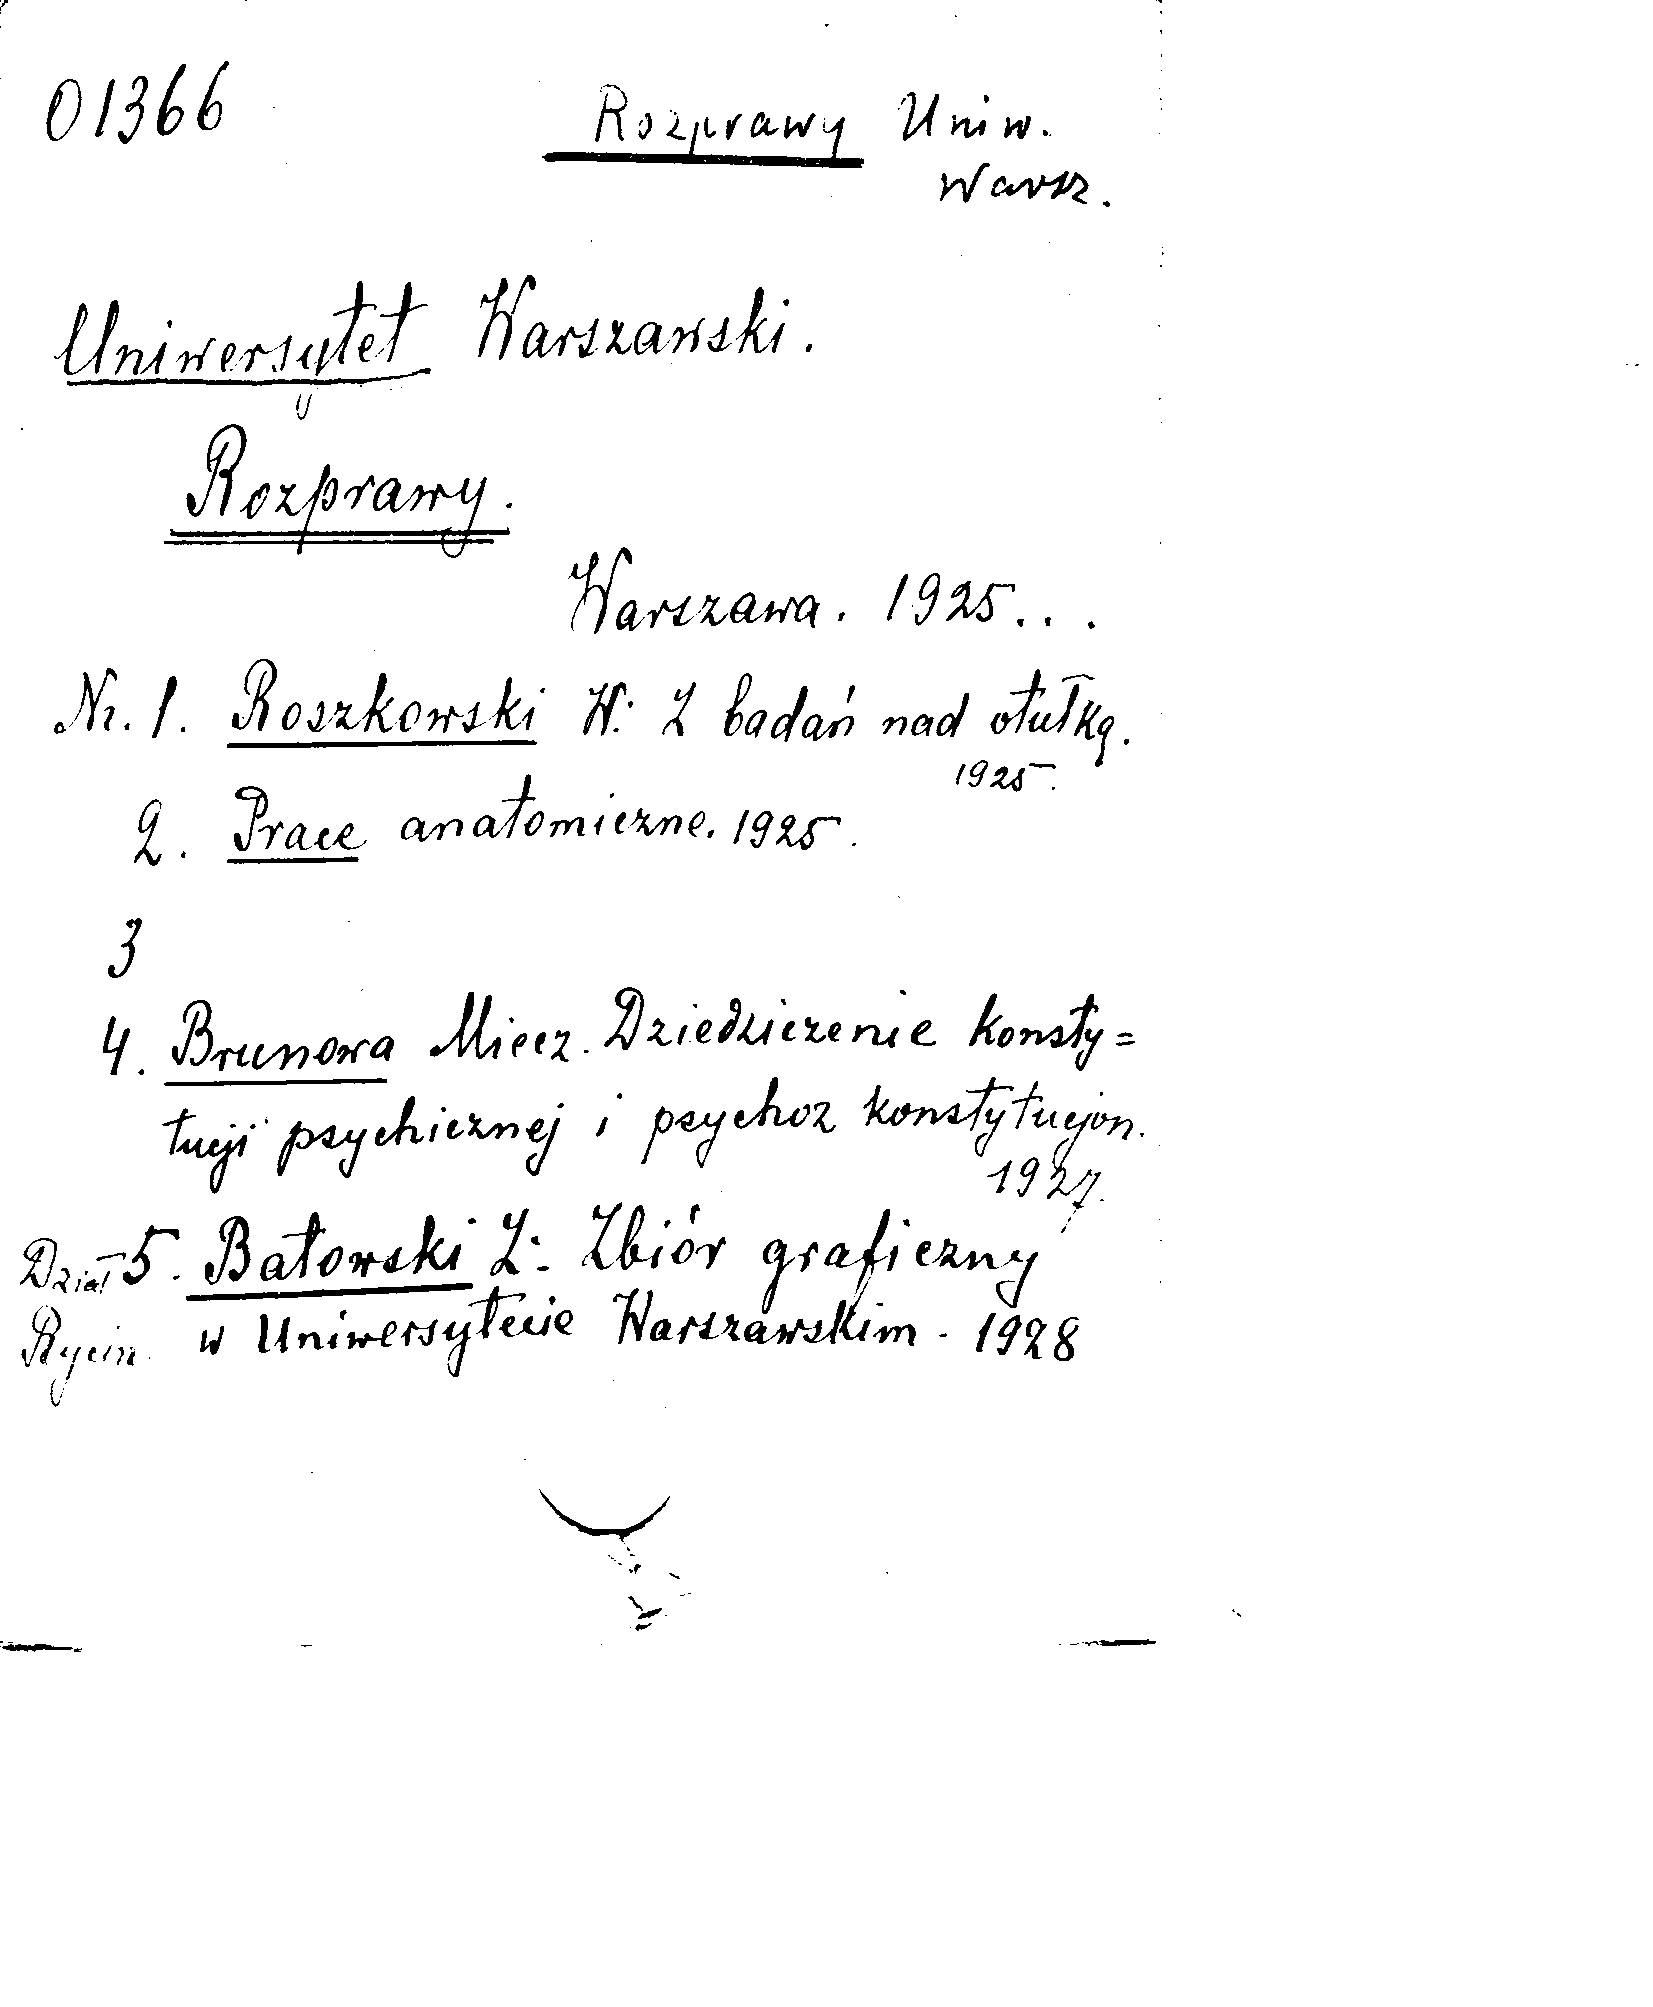 01366
Rozprawy Uniw.
Warsz.
Uniwersytet Warszawski.
Rozprawy.
Warszawa. 1925...
Nr. 1. Roszkowski W: Z badań nad otułką.
1925.
2. Prace anatomiczne. 1925.
3
4. Brunowa Miecz. Dziedziczenie konsty=
tucji psychicznej i psychoz konstytucjon.
1927.
Dział 5. Batowski Z: Zbiór graficzny
Rycin. w Uniwersytecie Warszawskim. 1928